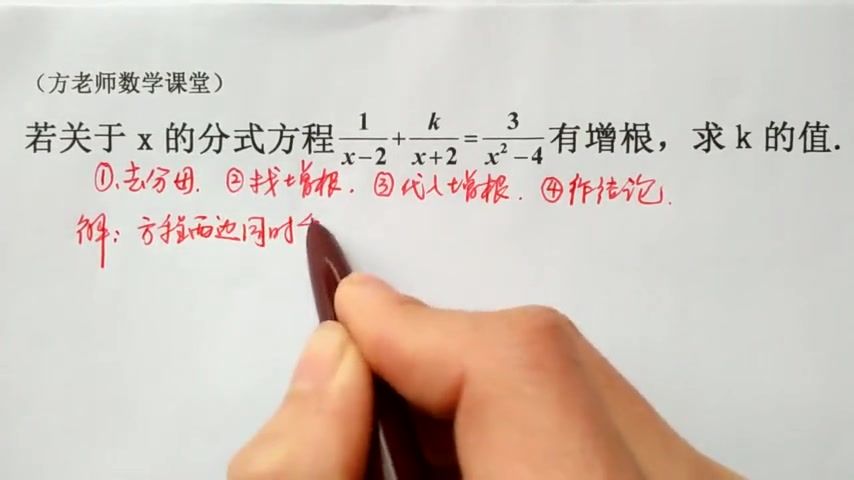 （方老师数学课堂）
若关于 x 的分式方程 1/(x−2) + k/(x+2) = 3/(x²−4) 有增根，求 k 的值.
①去分母. ②找增根. ③代入增根. ④作结论.
解：方程两边同时